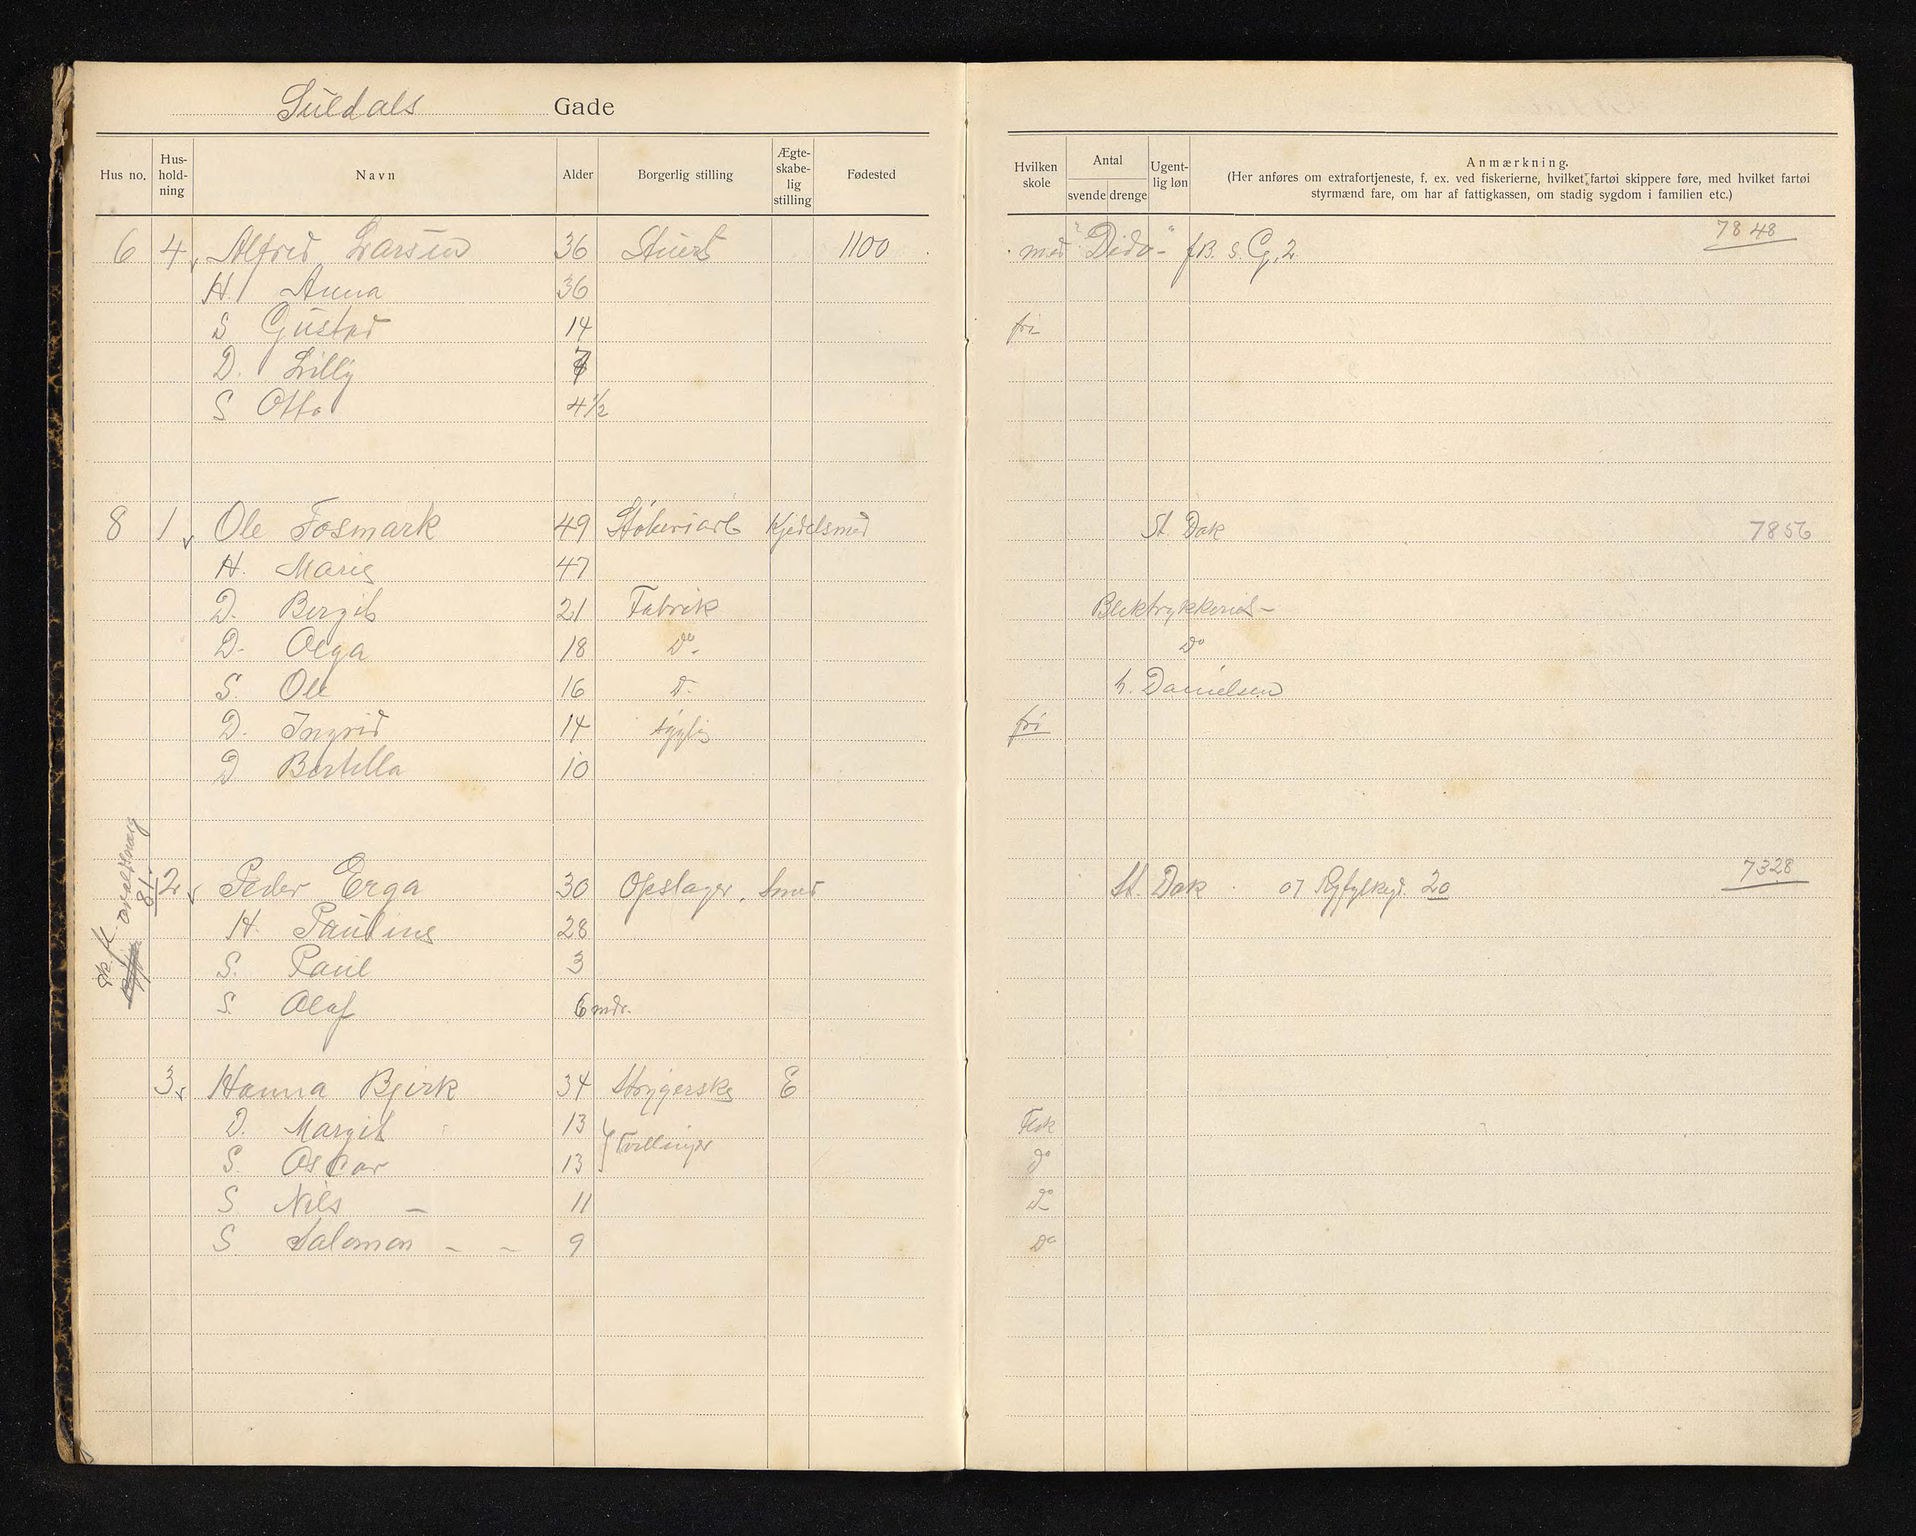 Suldals Gade
Hus no. Hus-hold-ning Navn Alder Borgerlig stilling Ægte-skabe-lig stilling Fødested
6 4 Alfred Larsen 36 Stuert 1100
H. Anna 36
S Gustav 14
D. Lilly 7
S Otto 4 1/2
8 1 Ole Fosmark 49 Støberiarb Kjedelsmed
H. Marie 47
D. Bergit 21 Fabrik
D. Olga 18 Do.
S. Ole 16 D.
D. Ingrid 14 sygelig
D Bertella 10
81
2 Peder Erga 30 Opslager. Smed
H. Pauline 28
S. Paul 3
S. Olaf 6 mdr.
3 Hanna Bjirk 34 Strygerske E
D. Margit 13
Tvillinger
S. Oscar 13
S Nils - 11
S Salomon - - 9
Hvilken skole Antal svende drenge Ugent-lig løn Anmærkning.
(Her anføres om extrafortjeneste, f. ex. ved fiskerierne, hvilket fartøi skippere føre, med hvilket fartøi
styrmænd fare, om har af fattigkassen, om stadig sygdom i familien etc.)
7848
med "Dido" f B. S. G. 2
fri
St. Dok 7856
Bliktrykkeriet -
Do
h. Danielsen
fri
7328
St. Dok. 07 Ryfylkegd. 20
Flsk
do
Do
Do